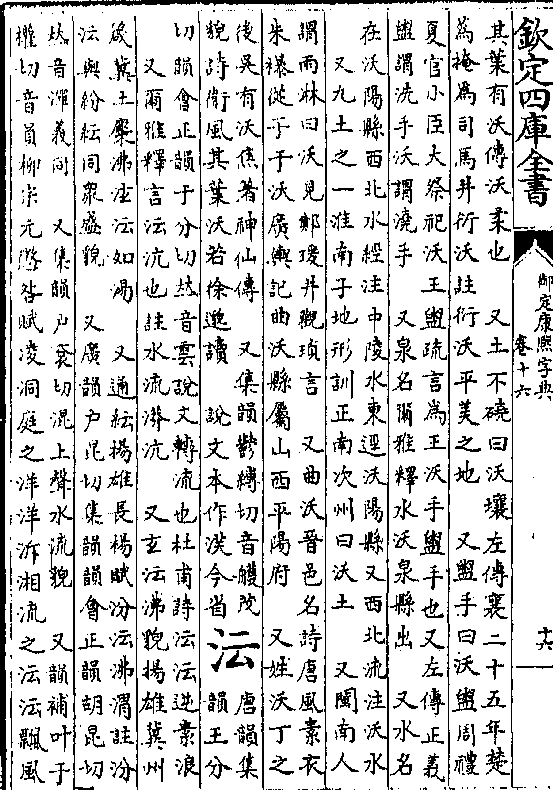 欽定四庫全書
御定康熙字典
卷十六
其葉有沃傳沃柔也　又土不磽曰沃壤左傳襄二十五年楚
為掩為司馬井衍沃註衍沃平美之地　又盥手曰沃盥周禮
夏官小臣大祭祀沃王盥疏言為王沃手盥手也又左傳正義
盥謂洗手沃謂澆手　又泉名爾雅釋水沃泉縣出　又水名
在沃陽縣西北水經注中陵水東逕沃陽縣又西北流注沃水
又九土之一淮南子地形訓正南次州曰沃土　又閩南人
謂雨淋曰沃見鄭瑗井觀瑣言　又曲沃晉邑名詩唐風素衣
朱襮從子于沃廣輿記曲沃縣屬山西平陽府　又姓沃丁之
後吳有沃焦著神仙傳　又集韻鬱縛切音艧茂
貌詩衛風其葉沃若徐邈讀　說文本作渶今省
沄
唐韻集
韻王分
切韻會正韻于分切𠀤音雲說文轉流也杜甫詩沄沄逆素浪
又爾雅釋言沄沆也註水流漭沆　又玄沄沸貌揚雄冀州
後冀土糜沸沄沄如湯　又通紜揚雄長楊賦汾沄沸渭註汾
沄與紛紜同衆盛貌　又廣韻戶昆切集韻韻會正韻胡昆切
𠀤音渾義同　又集韻戶袞切混上聲水流貌　又韻補叶于
權切音員柳宗元懲咎賦凌洞庭之洋洋泝湘流之沄沄飄風